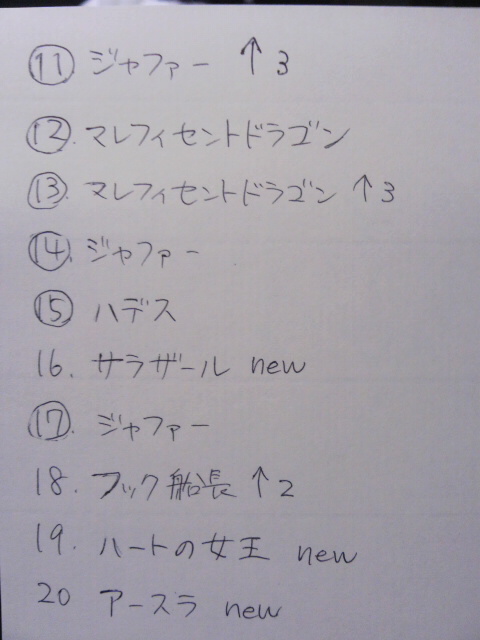 ⑪ ジャファー ↑3
⑫. マレフィセントドラゴン
⑬. マレフィセントドラゴン ↑3
⑭. ジャファー
⑮ ハデス
16. サラザール new
⑰. ジャファー
18. フック船長 ↑2
19. ハートの女王 new
20 アースラ new